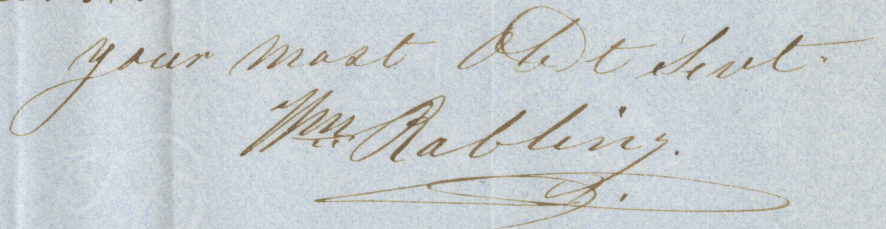 your most Obdt Servt.
Wm Rabling.